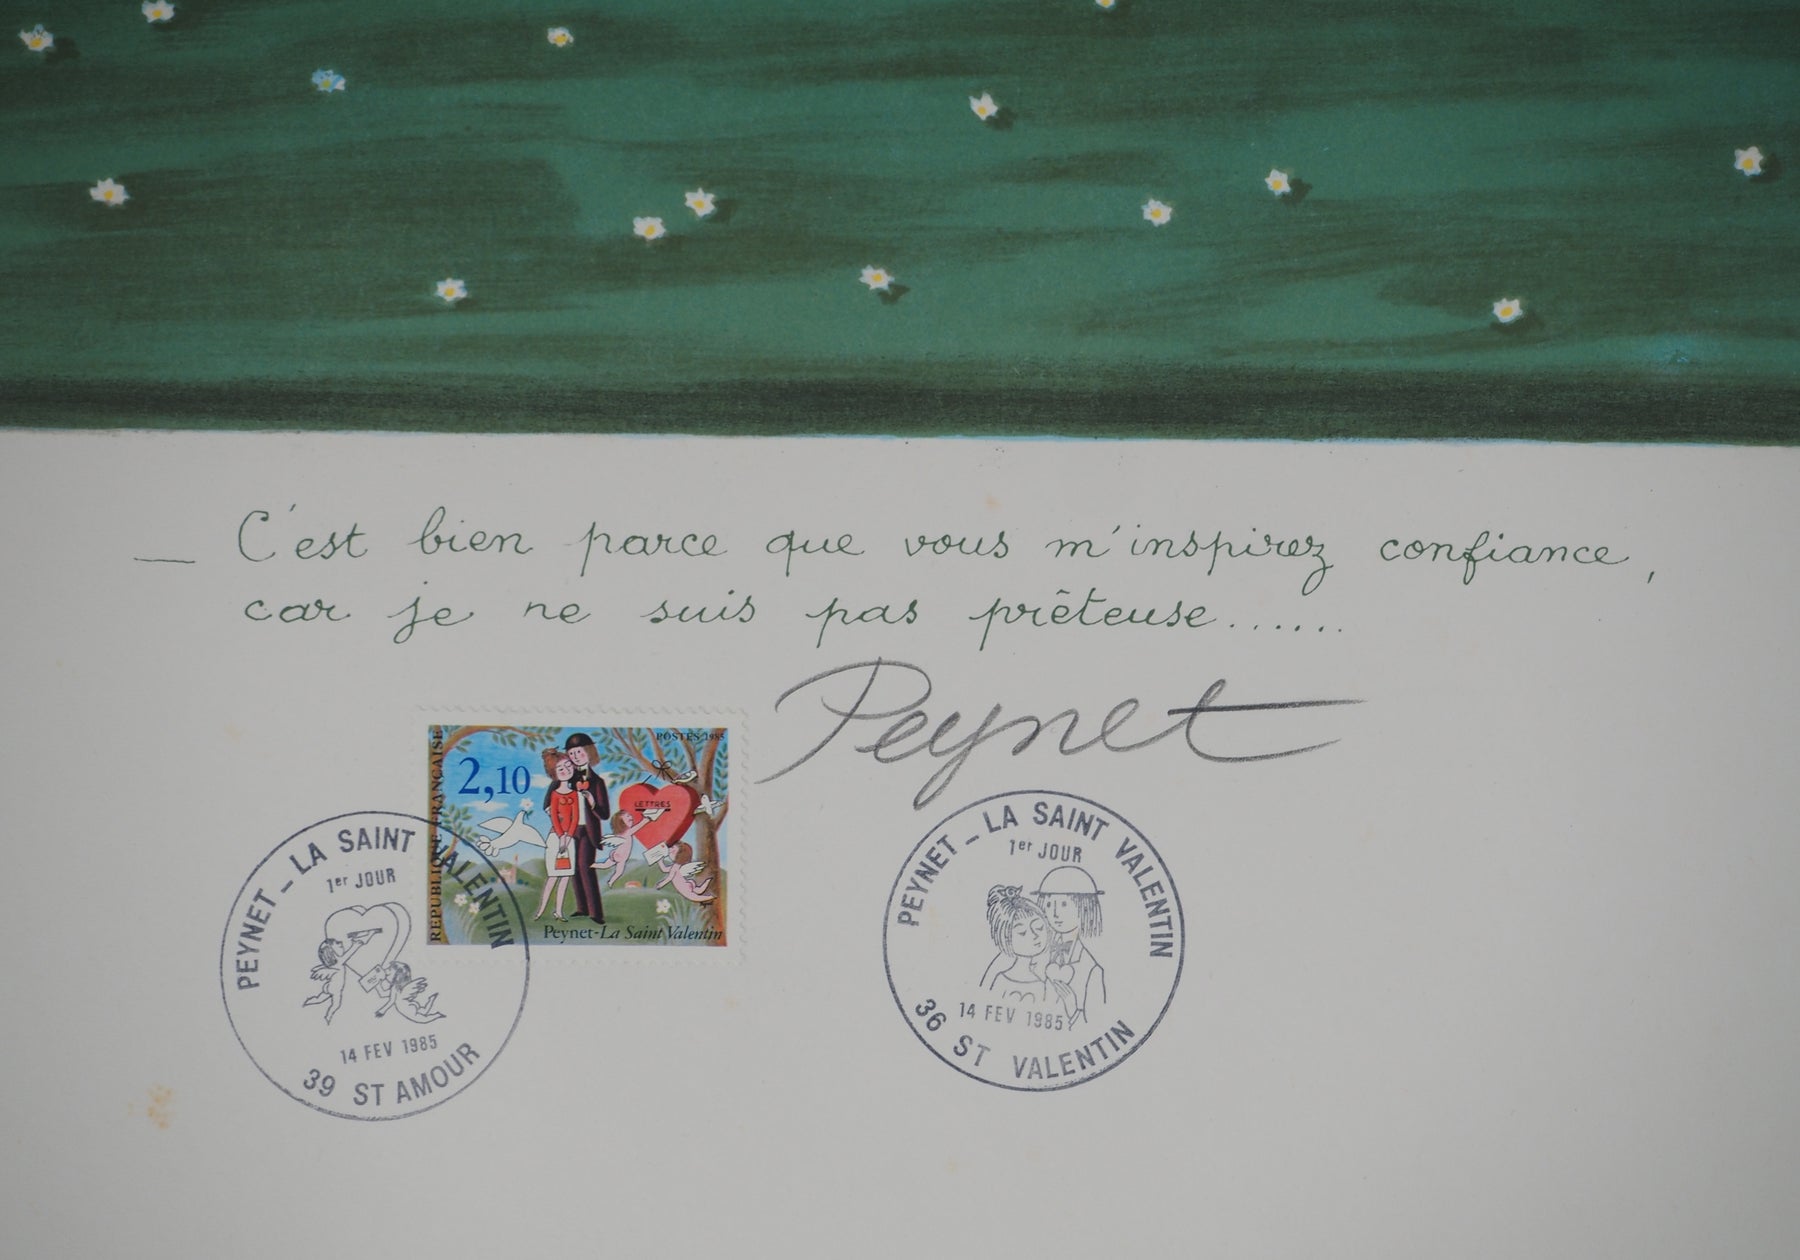 — C'est bien parce que vous m'inspirez confiance,
car je ne suis pas prêteuse......
Peynet
RÉPUBLIQUE FRANÇAISE
POSTES 1985
2,10
LETTRES
Peynet-La Saint Valentin
PEYNET - LA SAINT VALENTIN
1er JOUR
14 FEV 1985
39 ST AMOUR
PEYNET - LA SAINT VALENTIN
1er JOUR
14 FEV 1985
36 ST VALENTIN